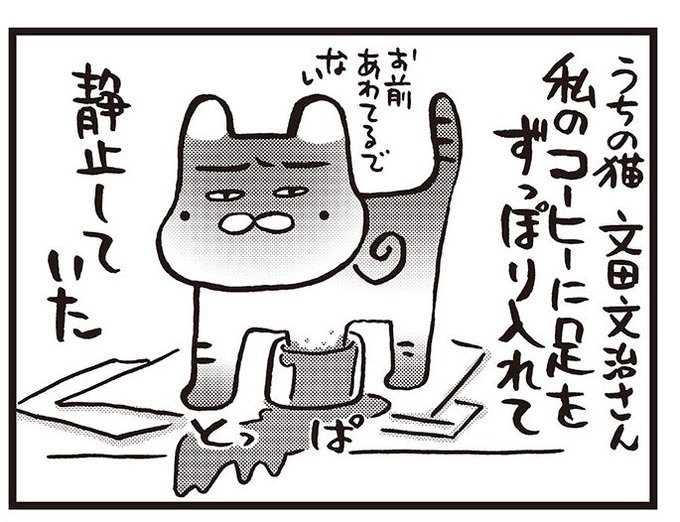 うちの猫 文田文治さん
私のコーヒーに足を
ずっぽり入れて
お前
あわてるで
ない
静止して
いた
とっぱ